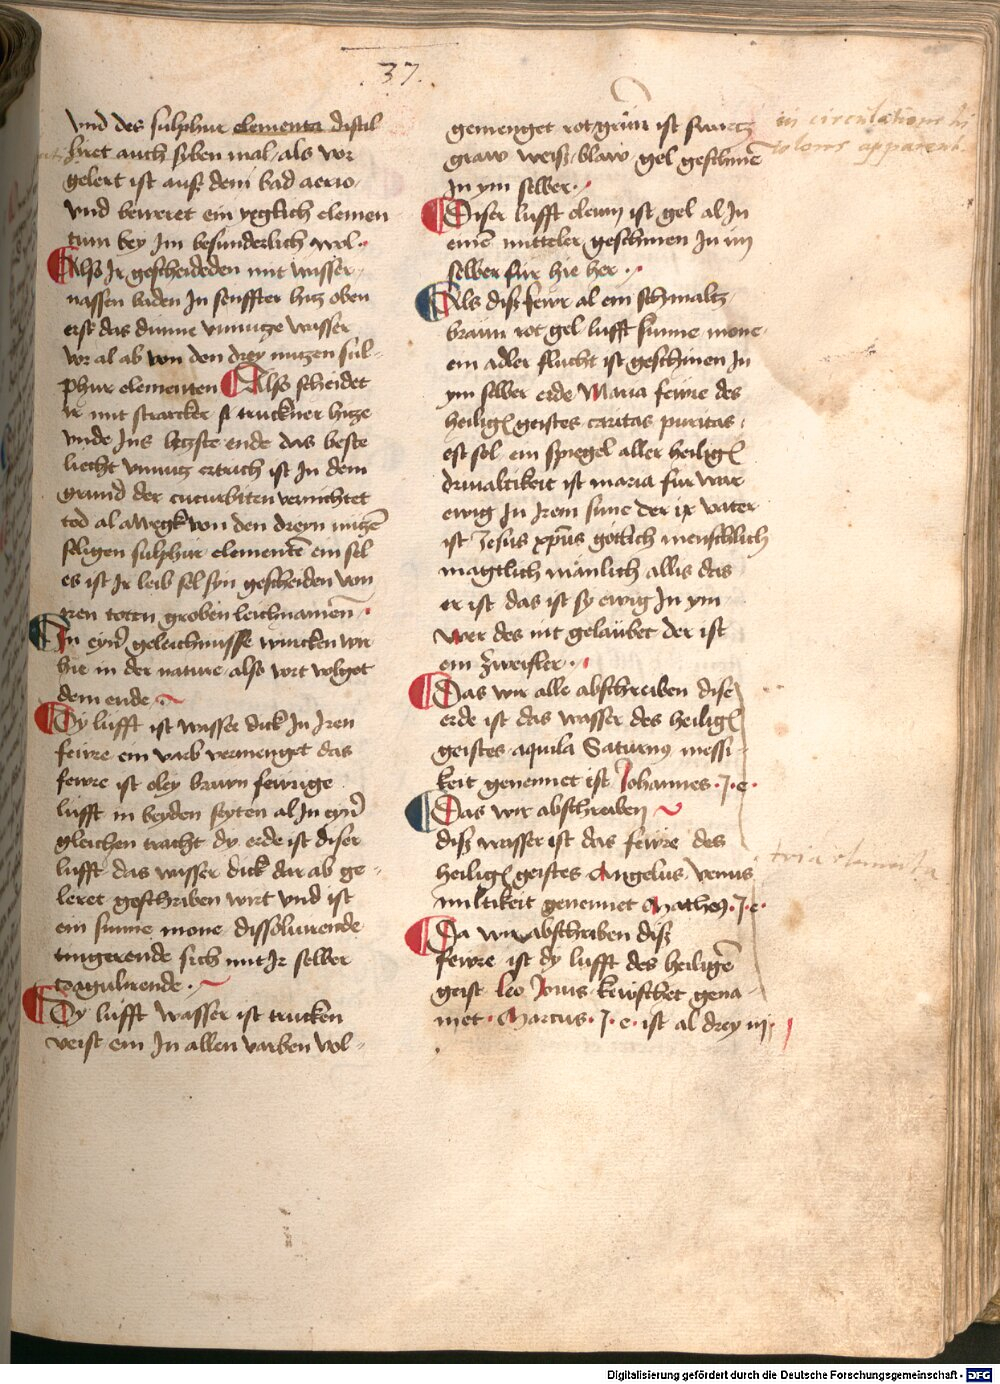 37.
vnd des sulphur elementa distil
liret auch siben mal als vor
gelert ist auß dem bad aerio
vnd beweret ein yglich elemen
tum bey Im besunderlich wol
Also Ir gescheideden mit wasser
nassen baden In senffter hitz oben
erst das dunne vnnutze wasser
vor al ab von den drey nutzen sul
phur elementen Also scheidet
ir mit starcker truckner hitze
vnde Ins letzste ende das beste
liecht vnnutz ertrich ist In dem
grund der cucurbiten vernichtet
tod al aWegk von den dreyn nutzē
seligen sulphur elementē ein sel
es ist Ir leib sel syn gescheiden von
iren toten groben leichnamen
In eyner geleichnusse wurcken wir
hie in der nature also wrt volget
dem ende
Dy lufft ist wasser dick In Iren
fewre ein varb vermenget das
fewre ist oley brawn fewrige
lufft in beyden seyten al In eyner
gleichen tracht dy erde ist diser
lufft das wasser dick dar ab ge
leret geschriben wirt vnd ist
ein sunne mone dissoluirende
tingerende sich mit Ir selber
coagulirende
Dy lufft wasser ist trucken
veist ein In allen varben vol
gemenget rot grün ist swartz
graw weiß blaw gel geschinē
In ym selber
Diser lufft oleum ist gel al In
einē mitteler geschinen In im
selber für hie her
Als diß fewr al ein schmaltz
braun rot gel lufft sunne mone
ein adler flucht ist geschinen In
ym selber erde Maria fewre des
heilige geistes caritas puritas
est sol ein spiegel aller heilige
driualtikeit ist maria fur war
ewig In Irem sune der ir vater
ist Jesus xp̄us götlich menschlich
magtlich mänlich allis das
er ist das ist sy ewig In ym
wer des nit gelaubet der ist
ein zweifler
Das wir alle abschreiben dise
erde ist das wasser des heilige
geistes aquila Saturnus messi
keit genennet ist Johannes .J.e.
Das wir abschreiben
diß wasser ist das fewre des
heilige geistes Angelus venus
miltikeit genennet Matheus .J.e.
Da wir abschreiben diß
fewre ist dy lufft des heiligē
geist leo Jouis kewscheit gena
met Marcus .J.e. ist al drey iij
in circulatione hi
colores apparent.
tria elementa
Digitalisierung gefördert durch die Deutsche Forschungsgemeinschaft - DFG